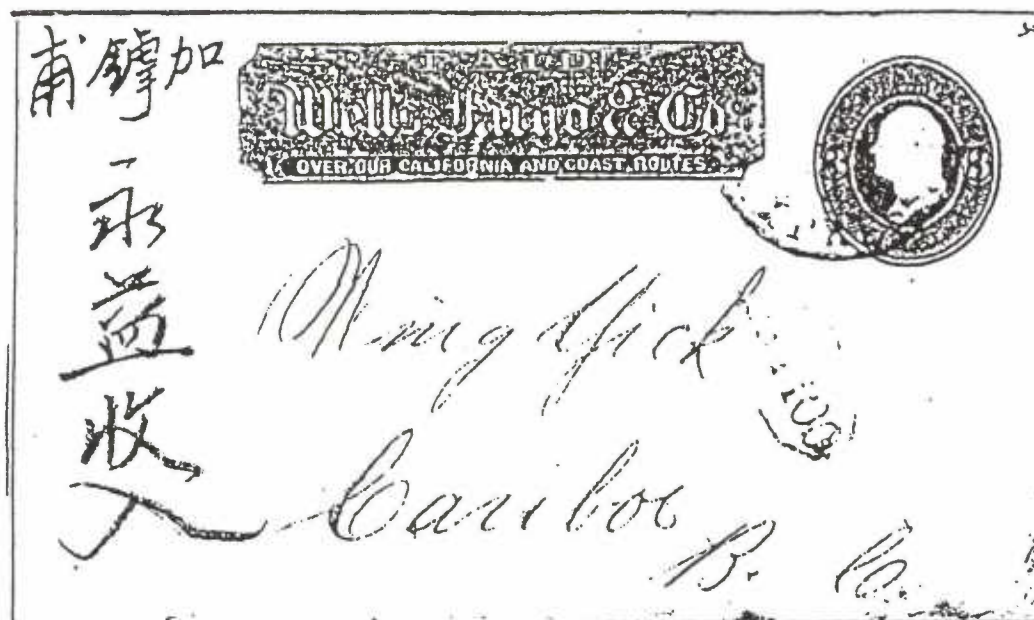 加鎼甫
永益收入
PAID
Wells, Fargo & Co
OVER OUR CALIFORNIA AND COAST ROUTES.
Wing Yick
Cariboo
B. C.